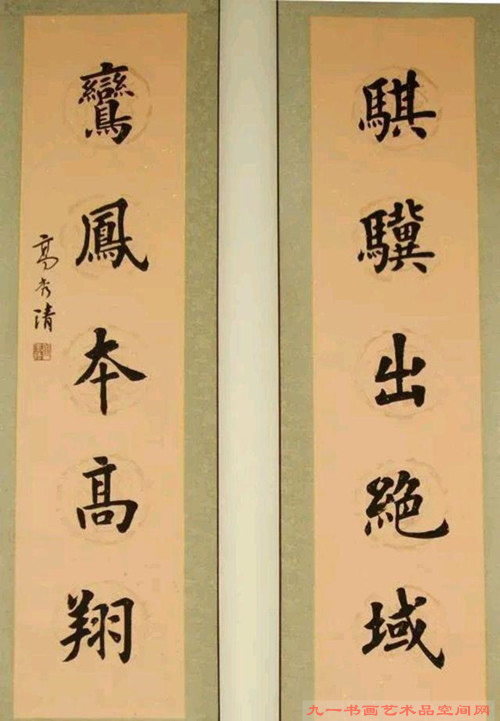 騏驥出絕域
鸞鳳本高翔
高秀清
九一书画艺术品空间网